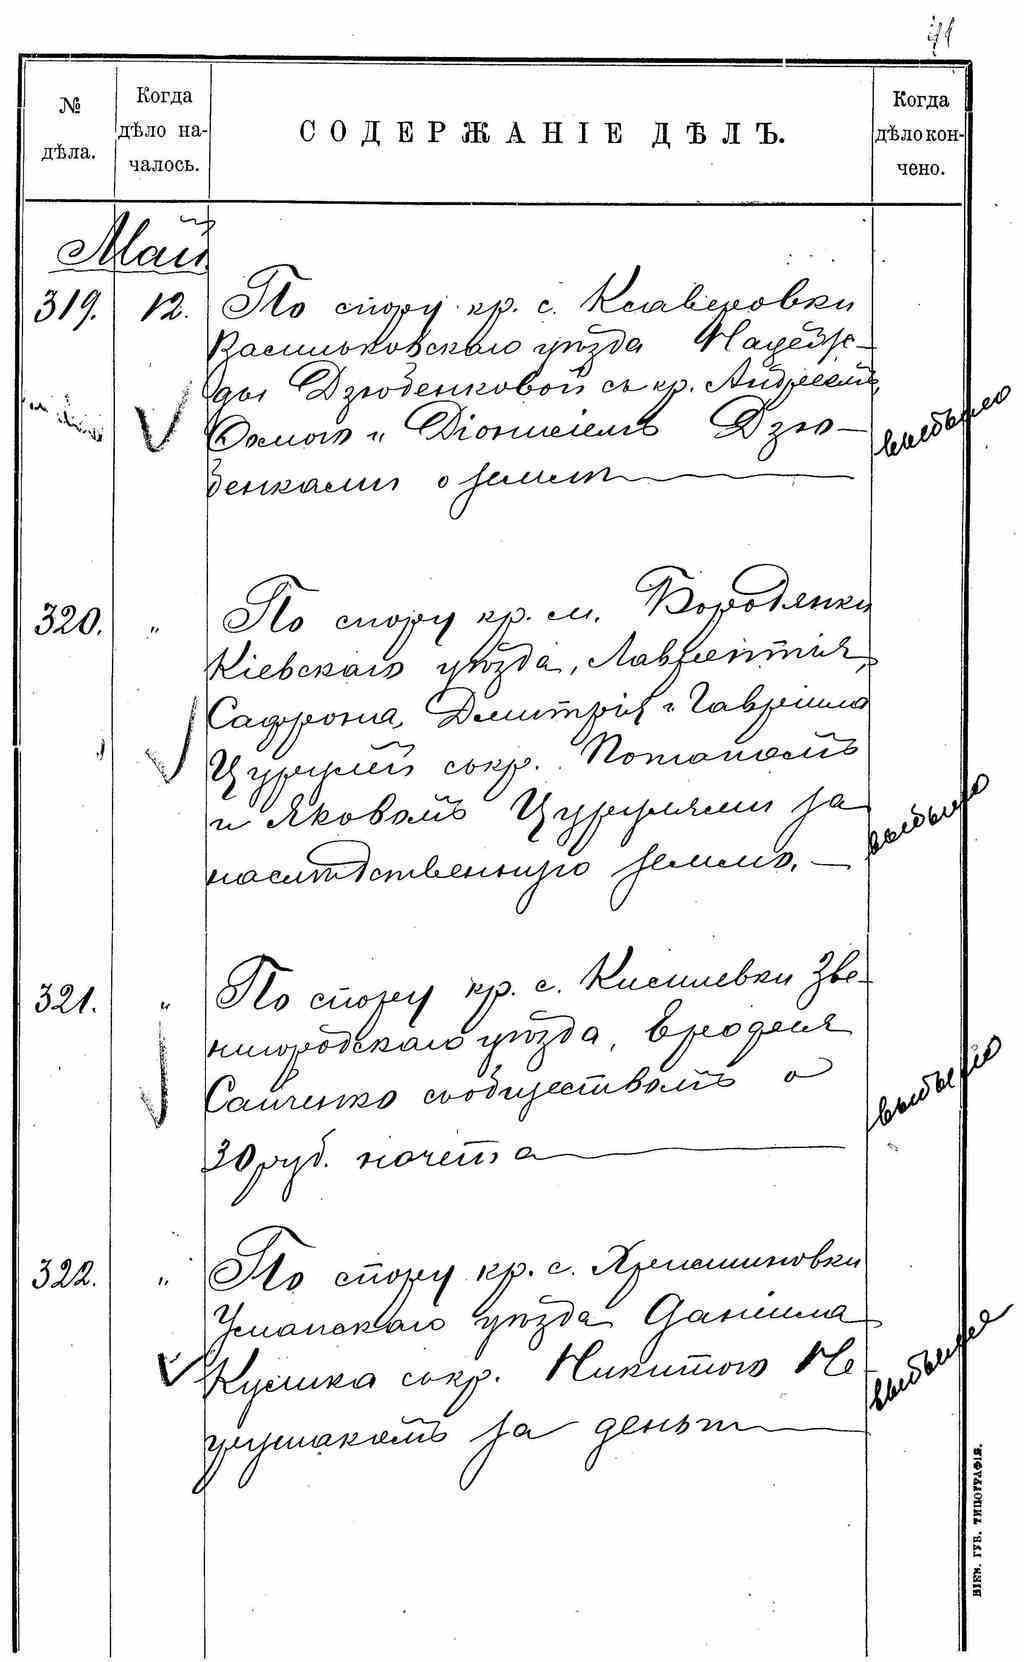 № дѣла.
Когда дѣло на-
чалось.
СОДЕРЖАНІЕ ДѢЛЪ.
Когда дѣло кон-
чено.
Май
319. 12. По спору кр. с. Ксаверовки
Васильковскаго уѣзда Надеж-
ды Дзюбенковой съ кр. Андреемъ,
Ѳомою и Діонисіемъ Дзю-
бенками о землѣ
выбыло
320. " По спору кр. м. Бородянки
Кіевскаго уѣзда, Лаврентія,
Сафрона, Дмитрія и Гавріила
Цурулей съ кр. Потапомъ
и Яковомъ Цурулями за
наслѣдственную землю. —
выбыло
321. " По спору кр. с. Киселевки Зве-
нигородскаго уѣзда,
Савченко съ обществомъ о
30 руб. начета
выбыло
322. " По спору кр. с. Хрестиновки
Уманскаго уѣзда Даніила
Кулика съ кр. Никитою Не
за деньги
выбыло
КІЕВ. ГУБ. ТИПОГРАФІЯ.